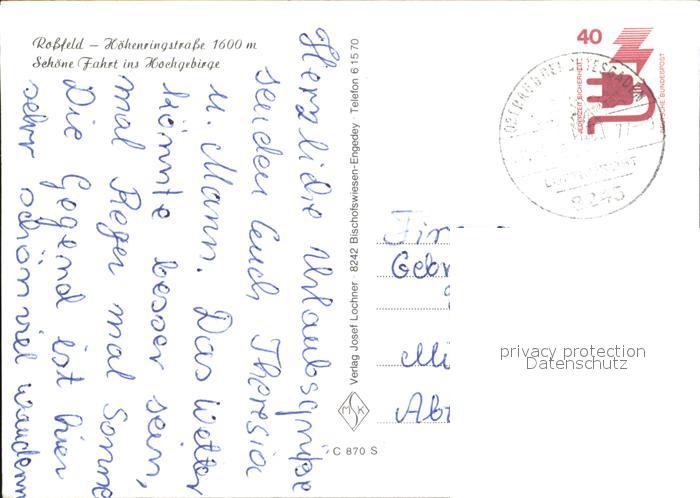 Roßfeld – Höhenringstraße 1600 m
Schöne Fahrt ins Hochgebirge
Herzliche Urlaubsgrüße
senden Euch Theresia
u. Mann. Das Wetter
könnte besser sein,
mal Regen mal Sonne
Die Gegend ist hier
sehr schön viel wandern
Verlag Josef Lochner · 8242 Bischofswiesen-Engedey · Telefon 61570
MSK
C 870 S
40
JEDERZEIT SICHERHEIT
DEUTSCHE BUNDESPOST
8243
Fir
Gebr
Mü
Abt
privacy protection
Datenschutz